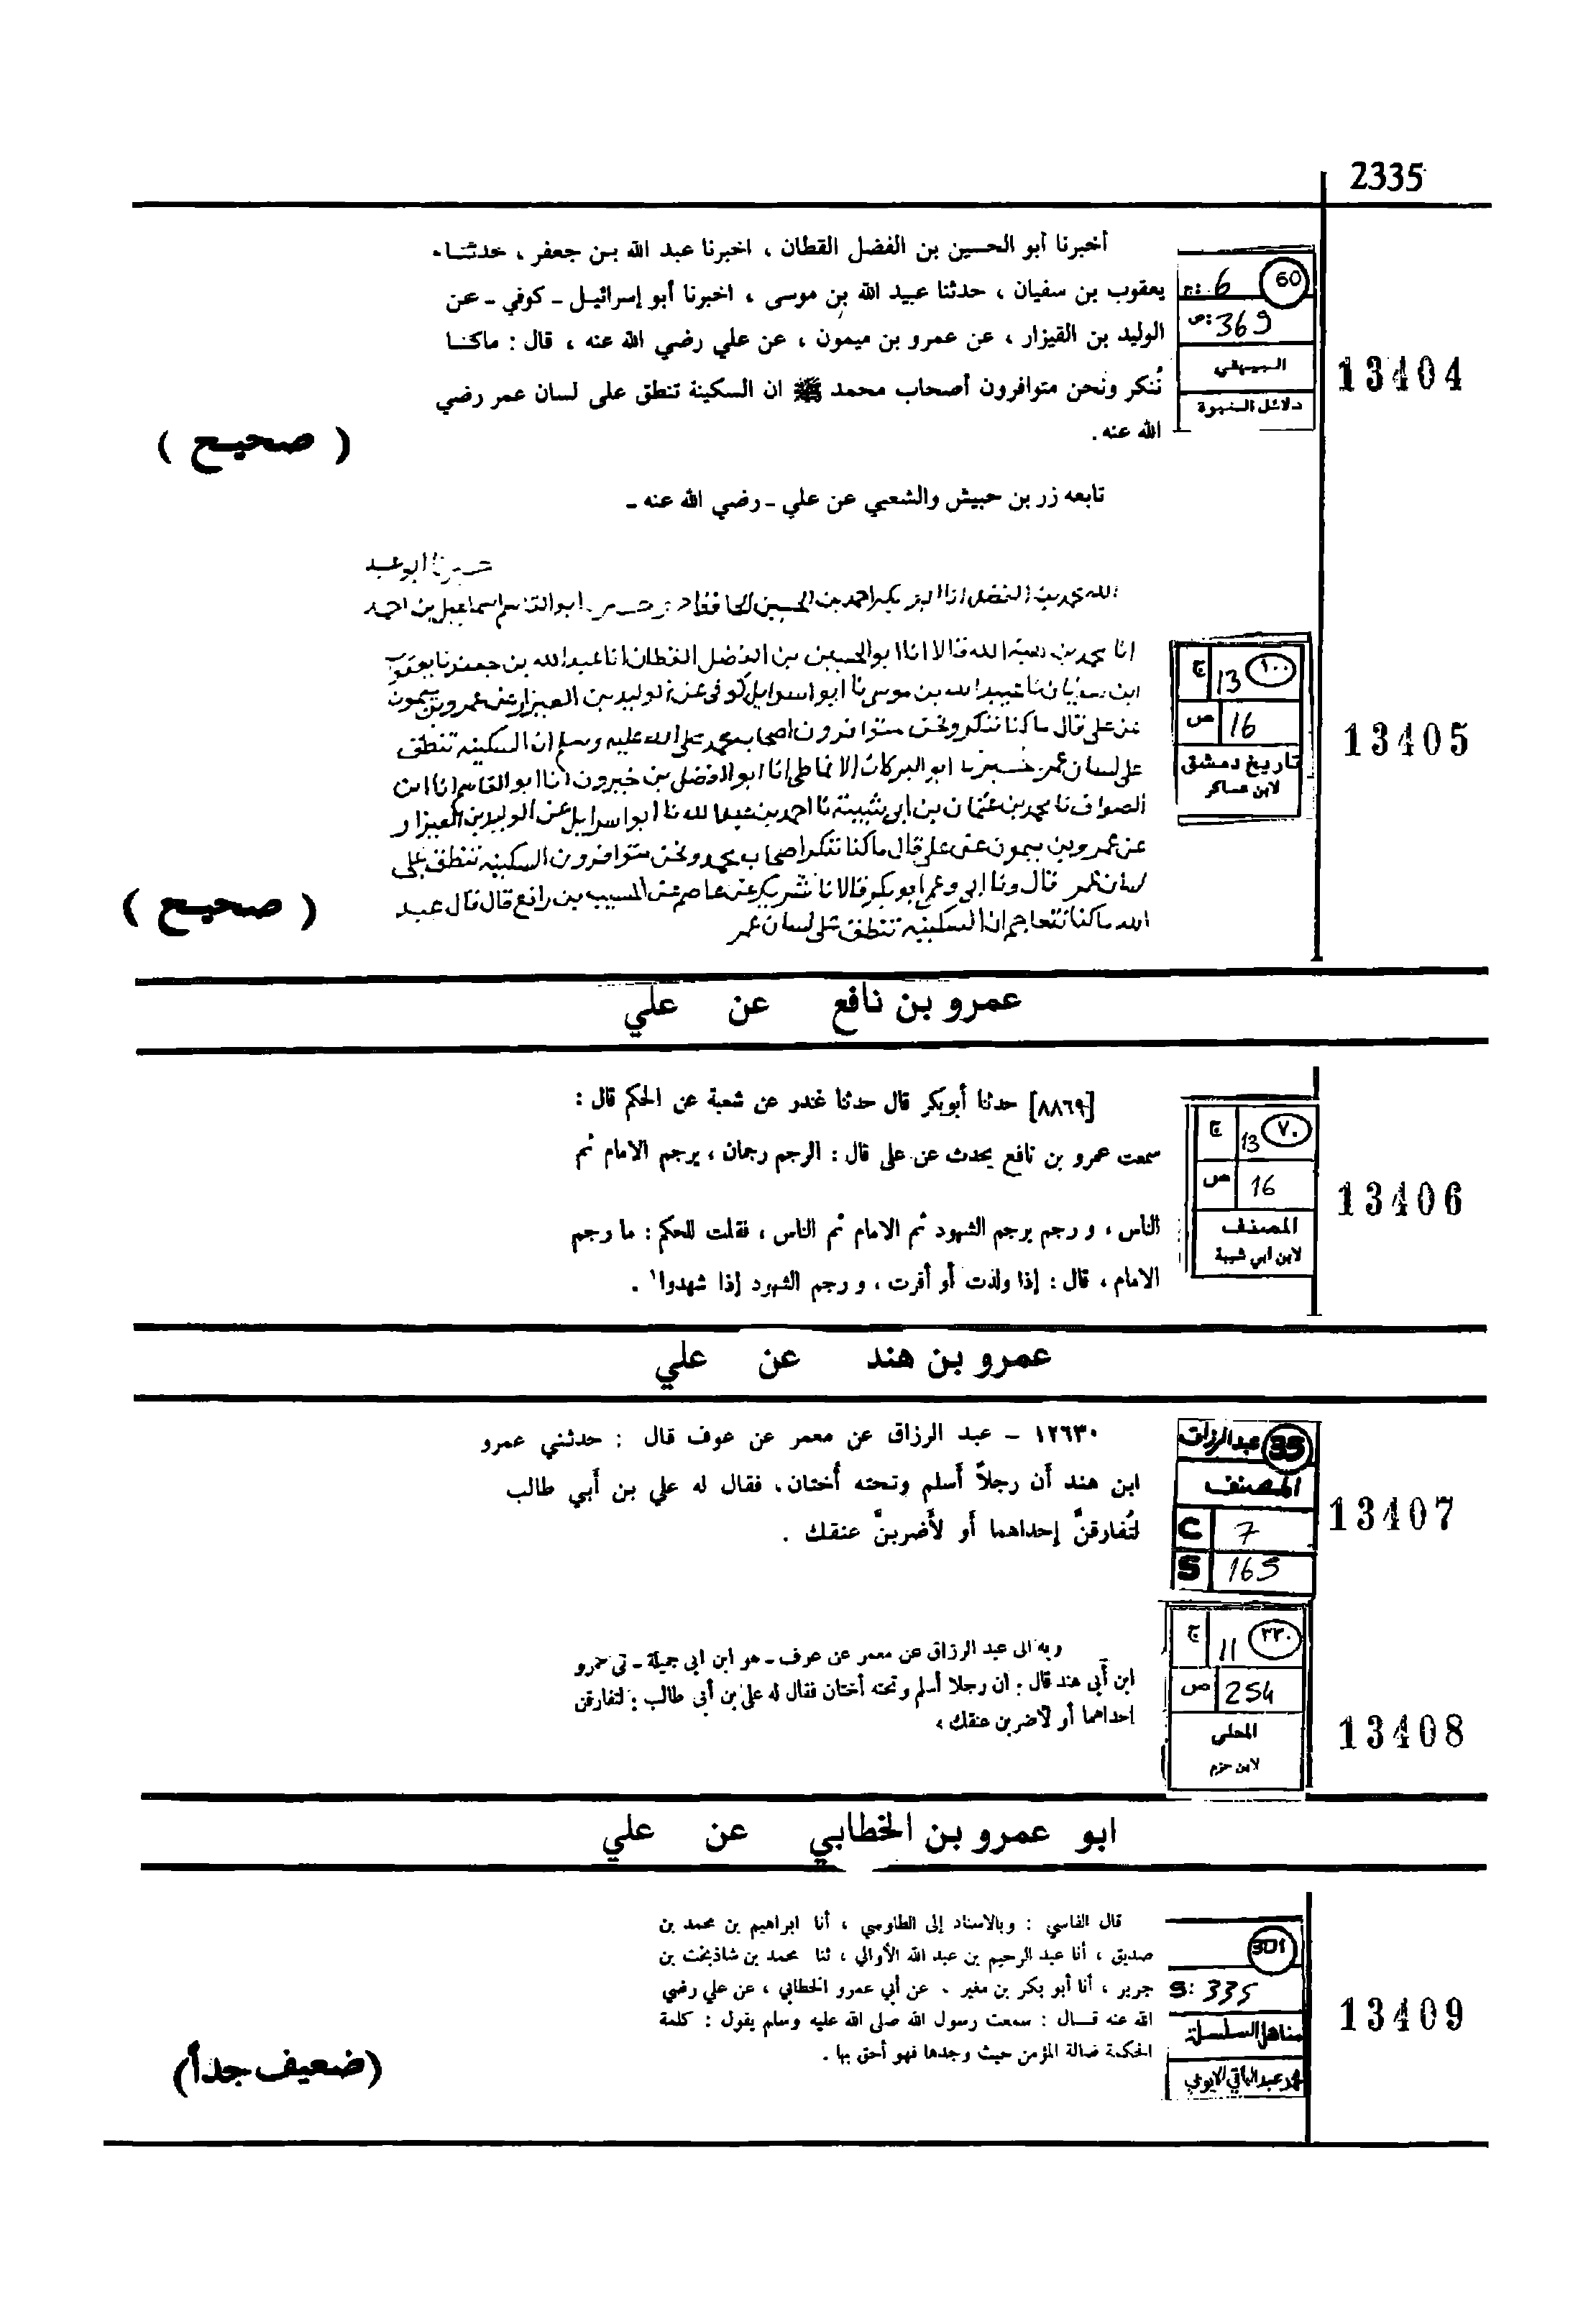 2335
أخبرنا أبو الحسين بن الفضل القطان ، اخبرنا عبد الله بن جعفر ، حدثنا
يعقوب بن سفيان ، حدثنا عبيد الله بن موسى ، اخبرنا أبو إسرائيل - كوفي - عن
الوليد بن القيزار ، عن عمرو بن ميمون ، عن علي رضي الله عنه ، قال : ماكنا
نُنكر ونحن متوافرون أصحاب محمد ﷺ ان السكينة تنطق على لسان عمر رضي
الله عنه .
( صحيح )
تابعه زر بن حبيش والشعبي عن علي - رضي الله عنه -
60
ج: 6
ص: 369
البيهقي
دلائل النبوة
13404
ابو عبد
الله محمد بن الفضل انا ابو بكر احمد بن الحسين الحافظ ابو القاسم اسماعيل بن احمد
انا محمد بن هبة الله قالا انا ابو الحسين بن الفضل القطان انا عبد الله بن جعفر نا يعقوب
ابن سفيان نا عبيد الله بن موسى نا ابو اسرايل كوفى عن الوليد بن العيزار عن عمرو بن ميمون
عن على قال ماكنا ننكر ونحن متوافرون اصحاب محمد صلى الله عليه وسلم ان السكينه تنطق
على لسان عمر ابو البركات الانماطى انا ابو الفضل بن خيرون انا ابو القاسم انا ابن
الصواف نا محمد بن عثمان بن ابى شيبة نا احمد بن نا ابو اسرايل عن الوليد بن العيزار
عن عمرو بن ميمون عن على قال ماكنا ننكر اصحاب محمد ونحن متوافرون السكينه تنطق على
لسان عمر قال ونا ابى وعمى ابو بكر قالا نا شريك عن عاصم عن المسيب بن رافع قال قال عبد
الله ماكنا نتعاجم ان السكينه تنطق على لسان عمر
( صحيح )
١٠٠
ج 13
ص 16
تاريخ دمشق
لابن عساكر
13405
عمرو بن نافع عن علي
[٨٨٦٩] حدثنا أبوبكر قال حدثنا غندر عن شعبة عن الحكم قال :
سمعت عمرو بن نافع يحدث عن على قال : الرجم رجمان ، يرجم الامام ثم
الناس ، و رجم يرجم الشهود ثم الامام ثم الناس ، فقلت للحكم : ما رجم
الامام ، قال : إذا ولدت أو أقرت ، و رجم الشهود إذا شهدوا١ .
٧٠
ج 13
ص 16
المصنف
لابن ابي شيبة
13406
عمرو بن هند عن علي
١٢٦٣٠ - عبد الرزاق عن معمر عن عوف قال : حدثني عمرو
ابن هند أن رجلاً أسلم وتحته أُختان ، فقال له علي بن أَبي طالب
لتُفارقنَّ إحداهما أَو لأَضربنَّ عنقك .
35
عبدالرزاق
المصنف
C 7
S 165
13407
وبه الى عبد الرزاق عن معمر عن عوف - هو ابن ابى جميلة - نى عمرو
ابن أبى هند قال : ان رجلا أسلم وتحته أختان فقال له على بن أبى طالب : لتفارقن
احداهما أو لأضربن عنقك ،
٣٣٠
ج 11
ص 254
المحلى
لابن حزم
13408
ابو عمرو بن الخطابي عن علي
قال الفاسي : وبالاسناد إلى الطاوسي ، أنا ابراهيم بن محمد بن
صديق ، أنا عبد الرحيم بن عبد الله الأوالي ، ثنا محمد بن شاذبخت بن
جرير ، أنا أبو بكر بن مغير . عن أبي عمرو الخطابي ، عن علي رضي
الله عنه قــال : سمعت رسول الله صلى الله عليه وسلم يقول : كلمة
الحكمة ضالة المؤمن حيث وجدها فهو أحق بها .
(ضعيف جداً)
301
S: 335
مناهل السلسلة
محمد عبد الباقي الايوبي
13409